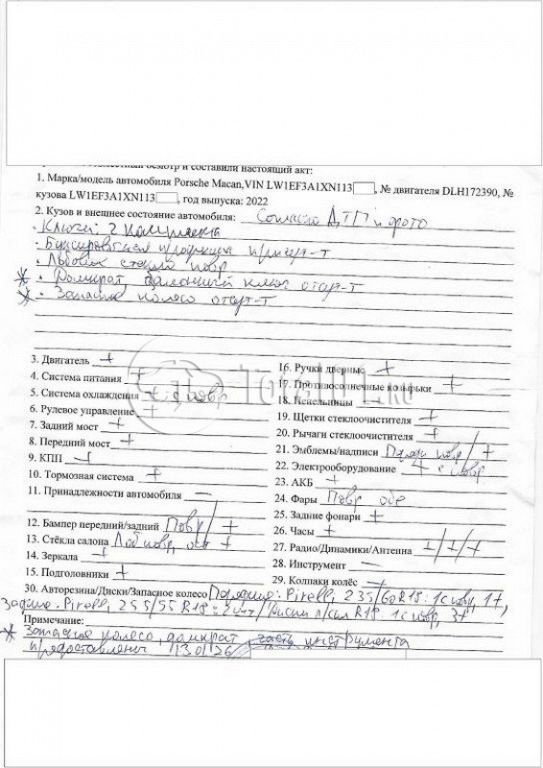 осмотр и составили настоящий акт:
1. Марка/модель автомобиля Porsche Macan,VIN LW1EF3A1XN113, № двигателя DLH172390, №
кузова LW1EF3A1XN113, год выпуска: 2022
2. Кузов и внешнее состояние автомобиля: Согласно ДТП и фото
- Ключи: 2 комплекта
- Буксировочная проушина
- Лобовое стекло повр
* - Домкрат, балонный ключ отсут-т
* - Запасное колесо отсут-т
3. Двигатель +
4. Система питания +
5. Система охлаждения + с повр
6. Рулевое управление +
7. Задний мост +
8. Передний мост +
9. КПП +
10. Тормозная система +
11. Принадлежности автомобиля —
12. Бампер передний/задний Повр/ +
13. Стёкла салона Лоб повр, ост +
14. Зеркала +
15. Подголовники +
16. Ручки дверные +
17. Противосолнечные козырьки +
18. Пепельницы —
19. Щетки стеклоочистителя +
20. Рычаги стеклоочистителя +
21. Эмблемы/надписи повр/ +
22. Электрооборудование + с повр
23. АКБ +
24. Фары Повр обе
25. Задние фонари +
26. Часы +
27. Радио/Динамики/Антенна +/+/+
28. Инструмент —
29. Колпаки колёс +
30. Авторезина/Диски/Запасное колесо Передние: Pirelli 235/60R18: 1с повр, 1+,
Задние: Pirelli 255/55 R18 /Диски R18: 1с повр, 3+
Примечание:
* Запасное колесо, домкрат, часть инструмента
предоставлены 13.01.26
TOTAL01.RU